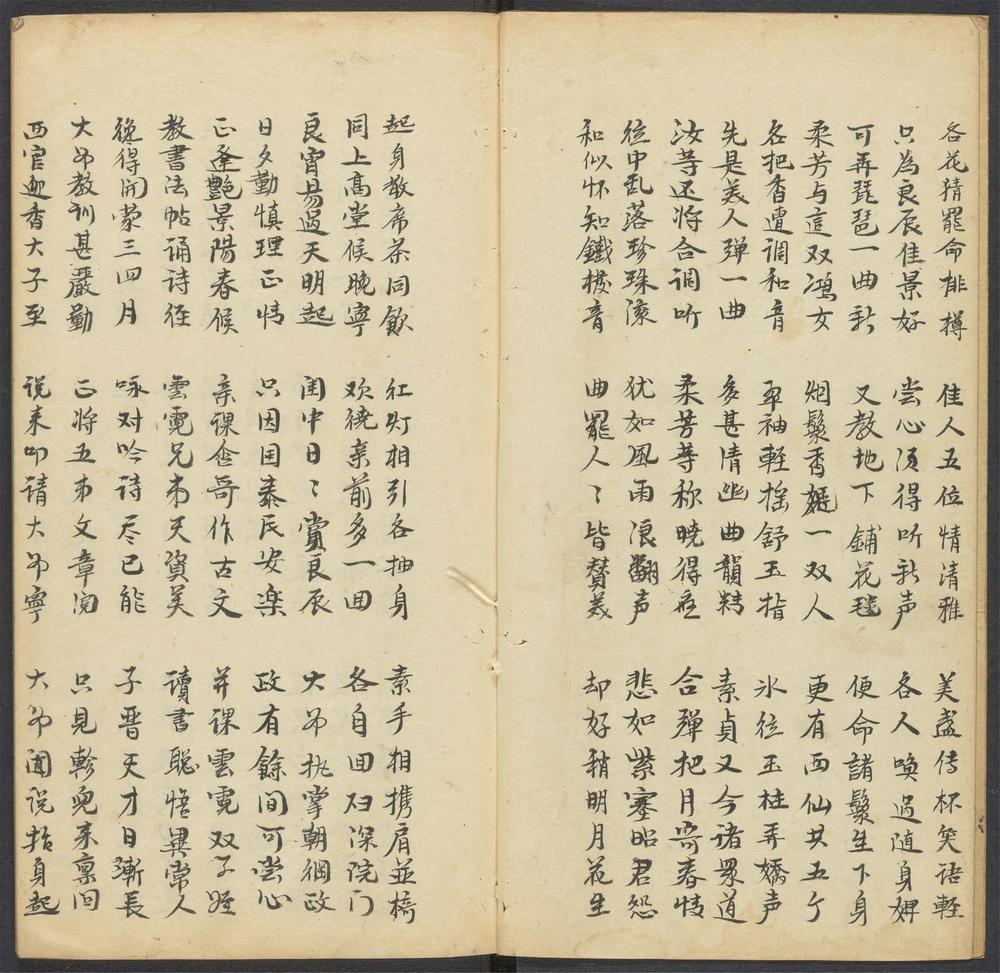 各花猜罷命排樽 佳人五位情清雅 美盞传杯笑语輕
只為良辰佳景好 尝心须得听新声 各人喚過随身婢
可弄琵琶一曲新 又教地下鋪花毯 便命諸鬟生下身
柔芳与這双鴻女 烟鬟香 一双人 更有西仙共五个
各把香遭调和音 平袖輕摇舒玉指 氷位玉柱弄嬌声
先是美人弹一曲 多甚清幽曲韻精 素貞又令诸眾道
汝等还将合调听 柔芳等称晓得 合弹把月寄春情
位中乱落珍珠滚 犹如風雨浪翻声 悲如紫塞昭君怨
和似怀知鐵撥音 曲罷人々皆賛美 却好稍明月花生
起身散席茶同飲 红灯相引各抽身 素手相携肩並
同上高堂候晚寧 欢繞亲前多一回 各自回归深院门
良宵易過天明起 闺中日々賞良辰 大帅执掌朝綱政
日夕勤慎理正情 只因国泰民安楽 政有餘间可尝心
正逢艷景陽春候 亲课 哥作古文 并课雲霓双子姪
教書法帖诵诗经 雲霓兄弟天資美 讀書聪悟異常人
纔得開蒙三四月 咏对吟诗尽已能 子晋天才日漸長
大帅教训甚嚴勤 正将五弟文章阅 只見軫兒来禀问
西宫迦香大子至 说来叩请大帅寧 大帅闻说抬身起